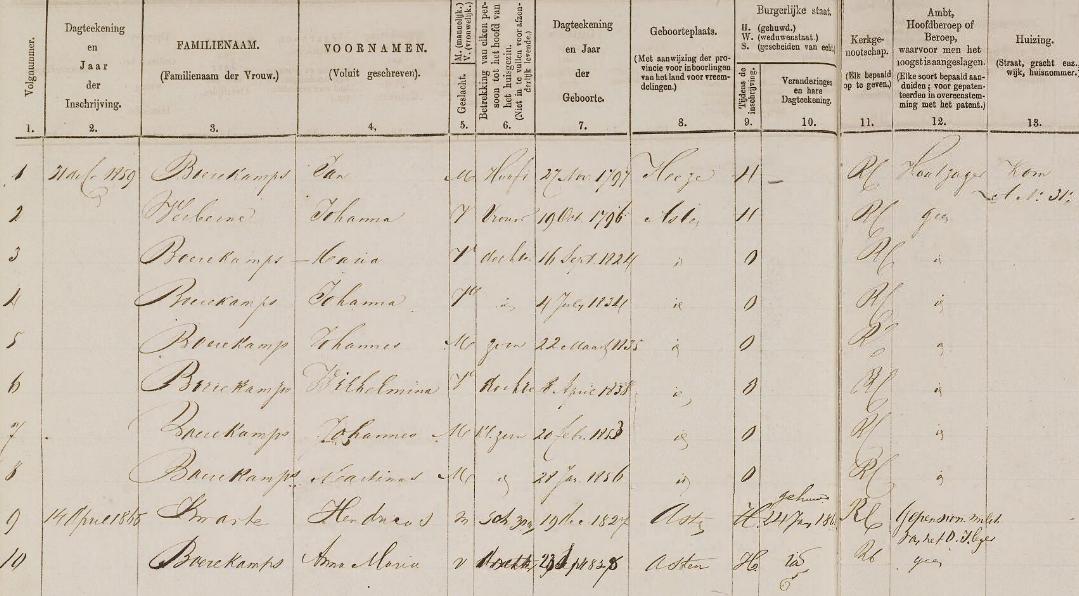 Volgnummer.
Dagteekening en Jaar der Inschrijving.
FAMILIENAAM.
(Familienaam der Vrouw.)
VOORNAMEN.
(Voluit geschreven).
Geslacht. M. (mannelijk.) V. (vrouwelijk.)
Betrekking van elken persoon tot het hoofd van het huisgezin. (Niet in te vullen voor afzonderlijk levende.)
Dagteekening en Jaar der Geboorte.
Geboorteplaats.
(Met aanwijzing der provincie voor inboorlingen van het land voor vreemdelingen.)
Burgerlijke staat.
H. (gehuwd.)
W. (weduwenstaat.)
S. (gescheiden van echt.)
Tijdens de inschrijving.
Veranderingen en hare Dagteekening.
Kerkgenootschap.
(Elk bepaald op te geven.)
Ambt, Hoofdberoep of Beroep, waarvoor men het hoogst is aangeslagen.
(Elke soort bepaald aanduiden; voor gepatenteerden in overeenstemming met het patent.)
Huizing.
(Straat, gracht enz. wijk, huisnommer.)
1. 2. 3. 4. 5. 6. 7. 8. 9. 10. 11. 12. 13.
1 1859 Boerekamps Jan M Hoofd 27 Nov 1797 Heeze H — RC Houtzager Kom
A No 31
2 Verberne Johanna V Vrouw 19 Oct. 1796 Asten H RC geen
3 Boerekamps Maria V dochter 16 Sept. 1824 id 0 RC id
4 Boerekamps Johanna V id 4 July 1834 id 0 RC id
5 Boerekamps Johannes M zoon 22 Maart 1835 id 0 RC id
6 Boerekamps Wilhelmina V dochter 8 April 1838 id 0 RC id
7 Boerekamps Johannes M Kl. zoon 20 feb. 1853 id 0 RC id
8 Boerekamps Martinus M id 28 Jan. 1856 id 0 RC id
gehuwd
9 14 April 1865 Hendricus m 19 dec 1827 Asten H. 24 Jan RC Gepensioneerd
10 Boerekamps Anna Maria v Asten H id RC geen